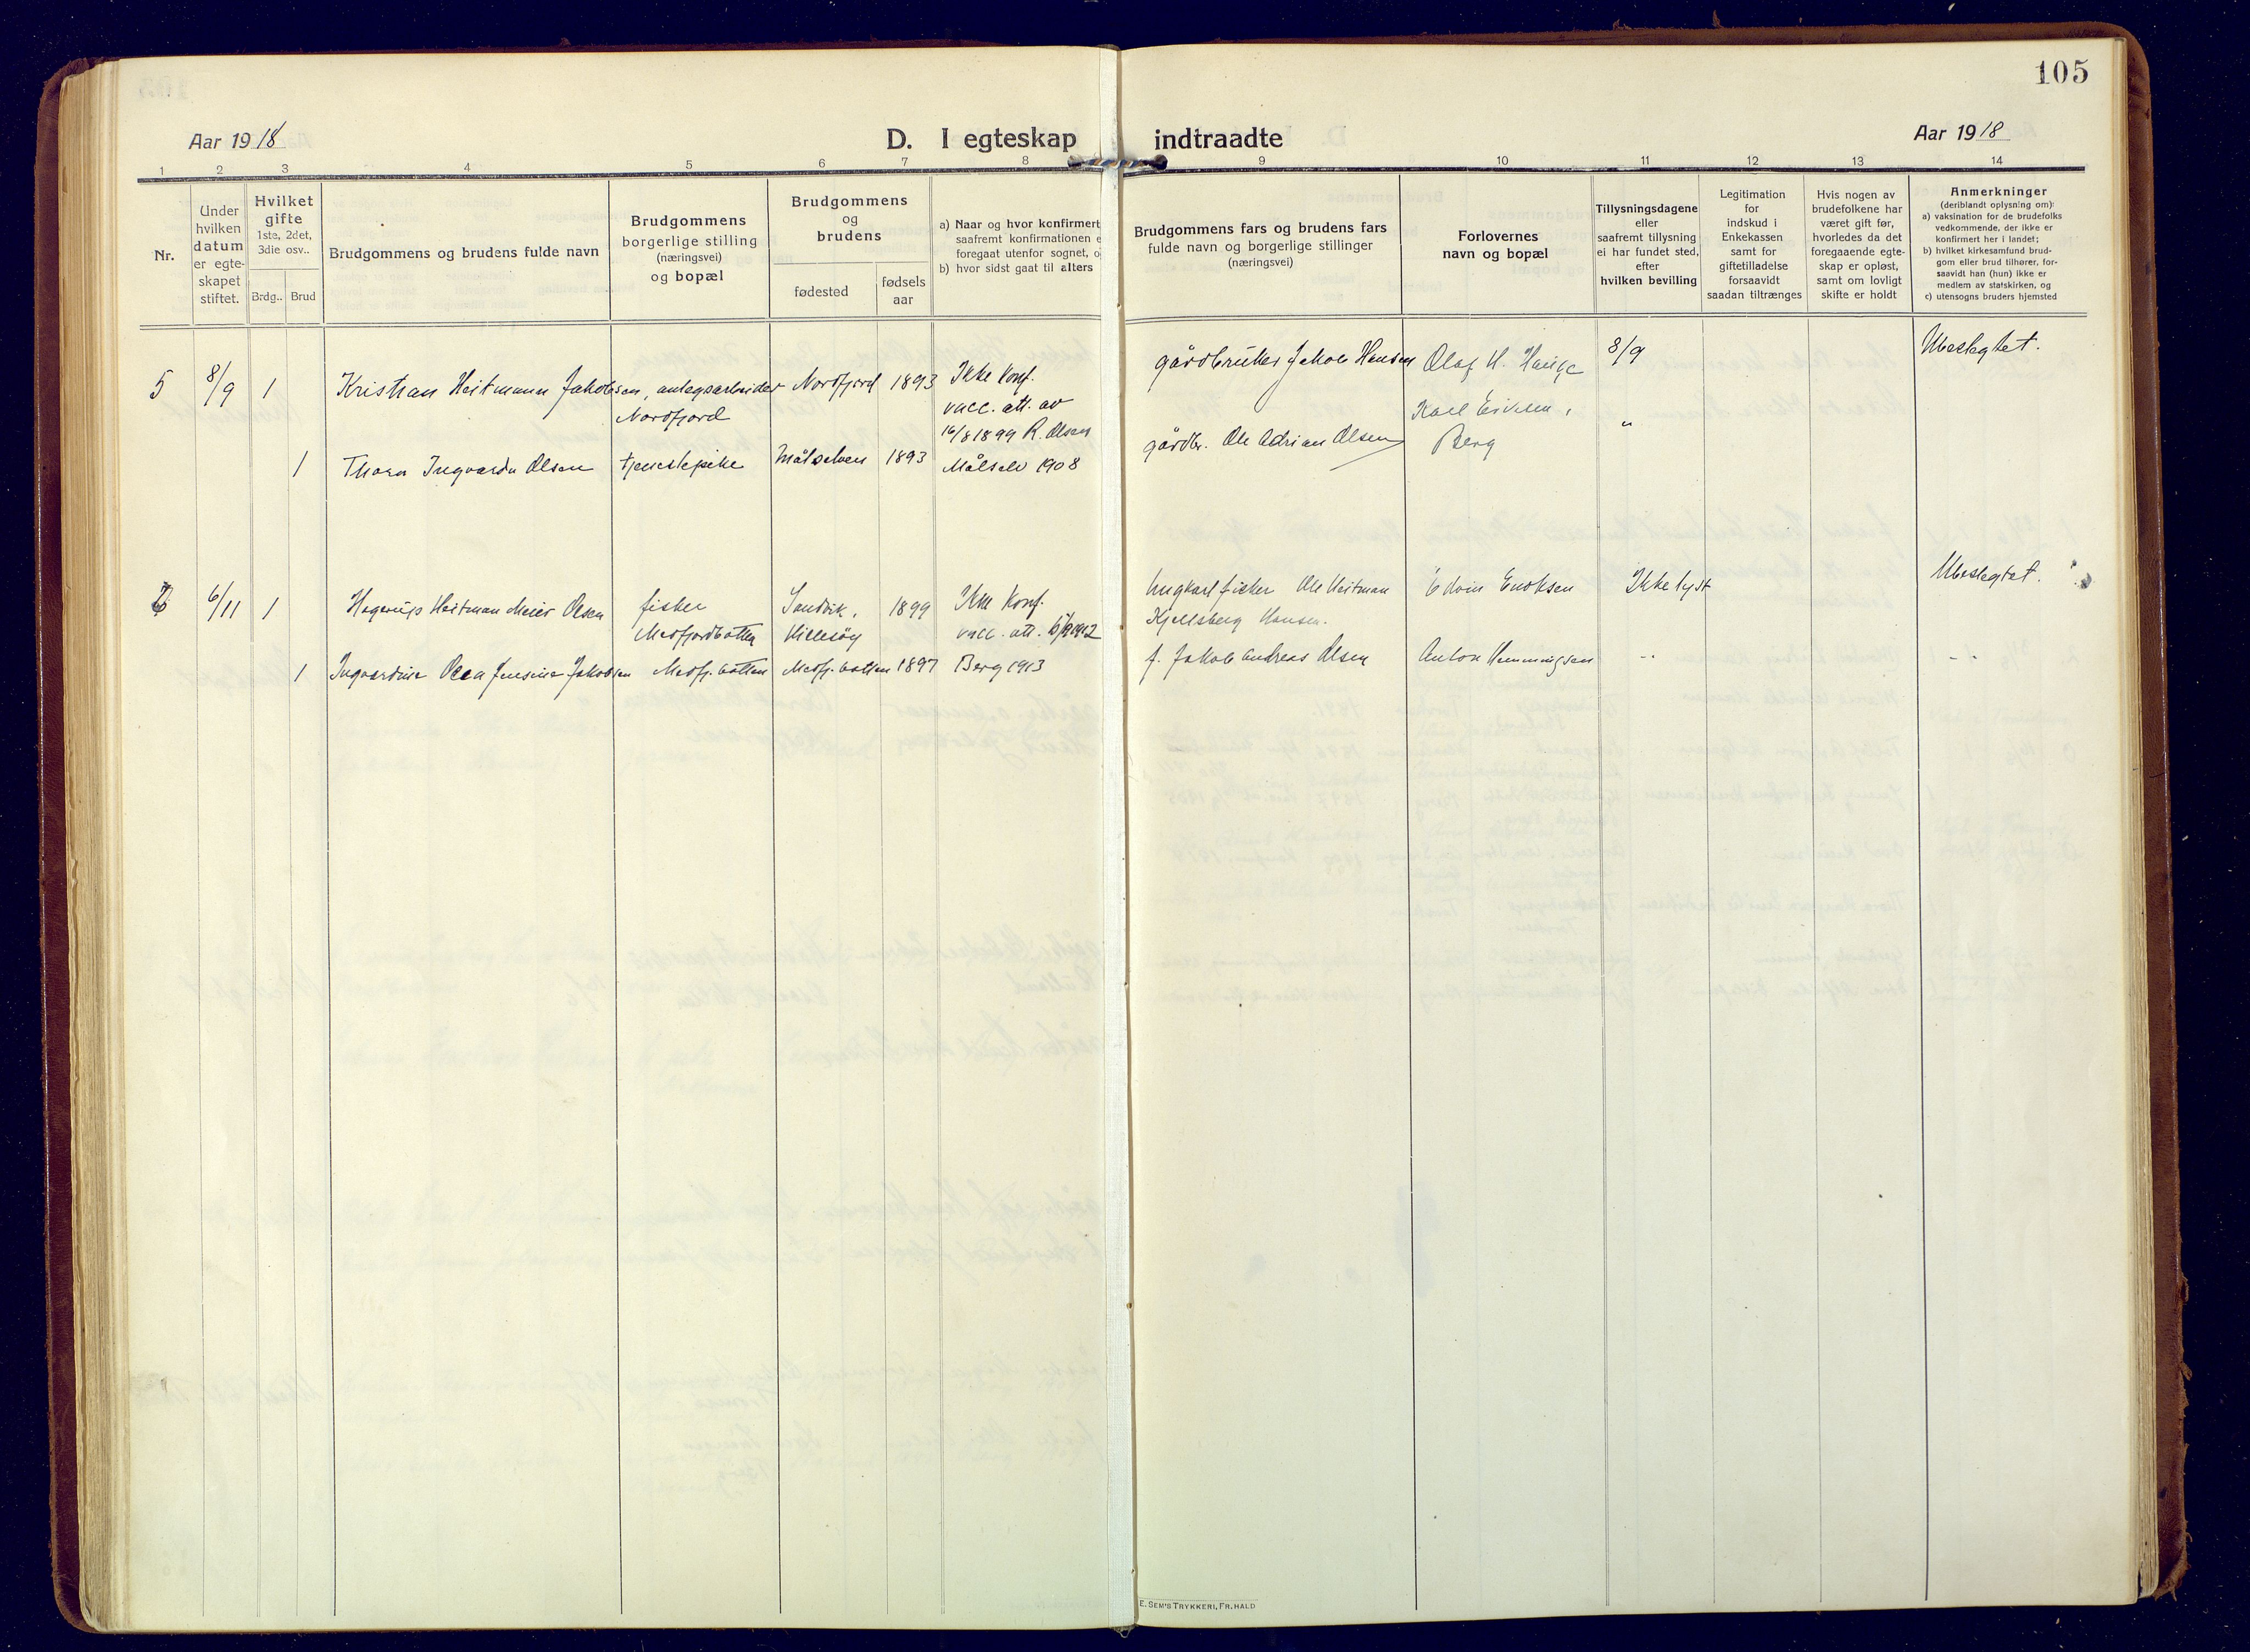 105
Aar 1918
D. I egteskap indtraadte
Aar 1918
1 2 3 4 5 6 7 8 9 10 11 12 13 14
Nr.
Under
hvilken
datum
er egte-
skapet
stiftet.
Hvilket
gifte
1ste, 2det,
3die osv..
Brdg..
Brud
Brudgommens og brudens fulde navn
Brudgommens
borgerlige stilling
(næringsvei)
og bopæl
Brudgommens
og
brudens
fødested
fødsels
aar
a) Naar og hvor konfirmert
saafremt konfirmationen e
foregaat utenfor sognet, o
b) hvor sidst gaat til alters
Brudgommens fars og brudens fars
fulde navn og borgerlige stillinger
(næringsvei)
Forlovernes
navn og bopæl
Tillysningsdagene
eller
saafremt tillysning
ei har fundet sted,
efter
hvilken bevilling
Legitimation
for
indskud i
Enkekassen
samt for
giftetilladelse
forsaavidt
saadan tiltrænges
Hvis nogen av
brudefolkene har
været gift før,
hvorledes da det
foregaaende egte-
skap er opløst,
samt om lovligt
skifte er holdt
Anmerkninger
(deriblandt oplysning om):
a) vaksination for de brudefolks
vedkommende, der ikke er
konfirmert her i landet;
b) hvilket kirkesamfund brud-
gom eller brud tilhører, for-
saavidt han (hun) ikke er
medlem av statskirken, og
c) utensogns bruders hjemsted
5 8/9 1 Kristian Heitmann Jakobsen, anlegsarbeider Nordfjord 1893 Ikke konf. gårdbruker Jakob Hansen Olaf H. Hauge 8/9 Ubeslegtet.
Nordfjord vacc. att. av Karl Eriksen, "
16/8 1899 R. Olsen gårdbr. Ole Adrian Olsen Berg
1 Thora Ingvarda Olsen tjenestepike Målselven 1893 Målselv 1908
6/11 1 Hagerup Heitman Meier Olsen fisker Sandvik, 1899 Ikke konf. ungkarl fisker Ole Heitman Edvin Enoksen Ikke lyst Ubeslegtet.
Medfjordbotten Hillesöy vacc. att. Kjellsberg Hansen.
1 Ingvardine Olea Jensine Jakobsen Medfj.botten Medfj.botten 1897 Berg 1913 f. Jakob Andreas Olsen Anton Hemmingsen -"- -"-
E. SEM'S TRYKKERI, FR. HALD